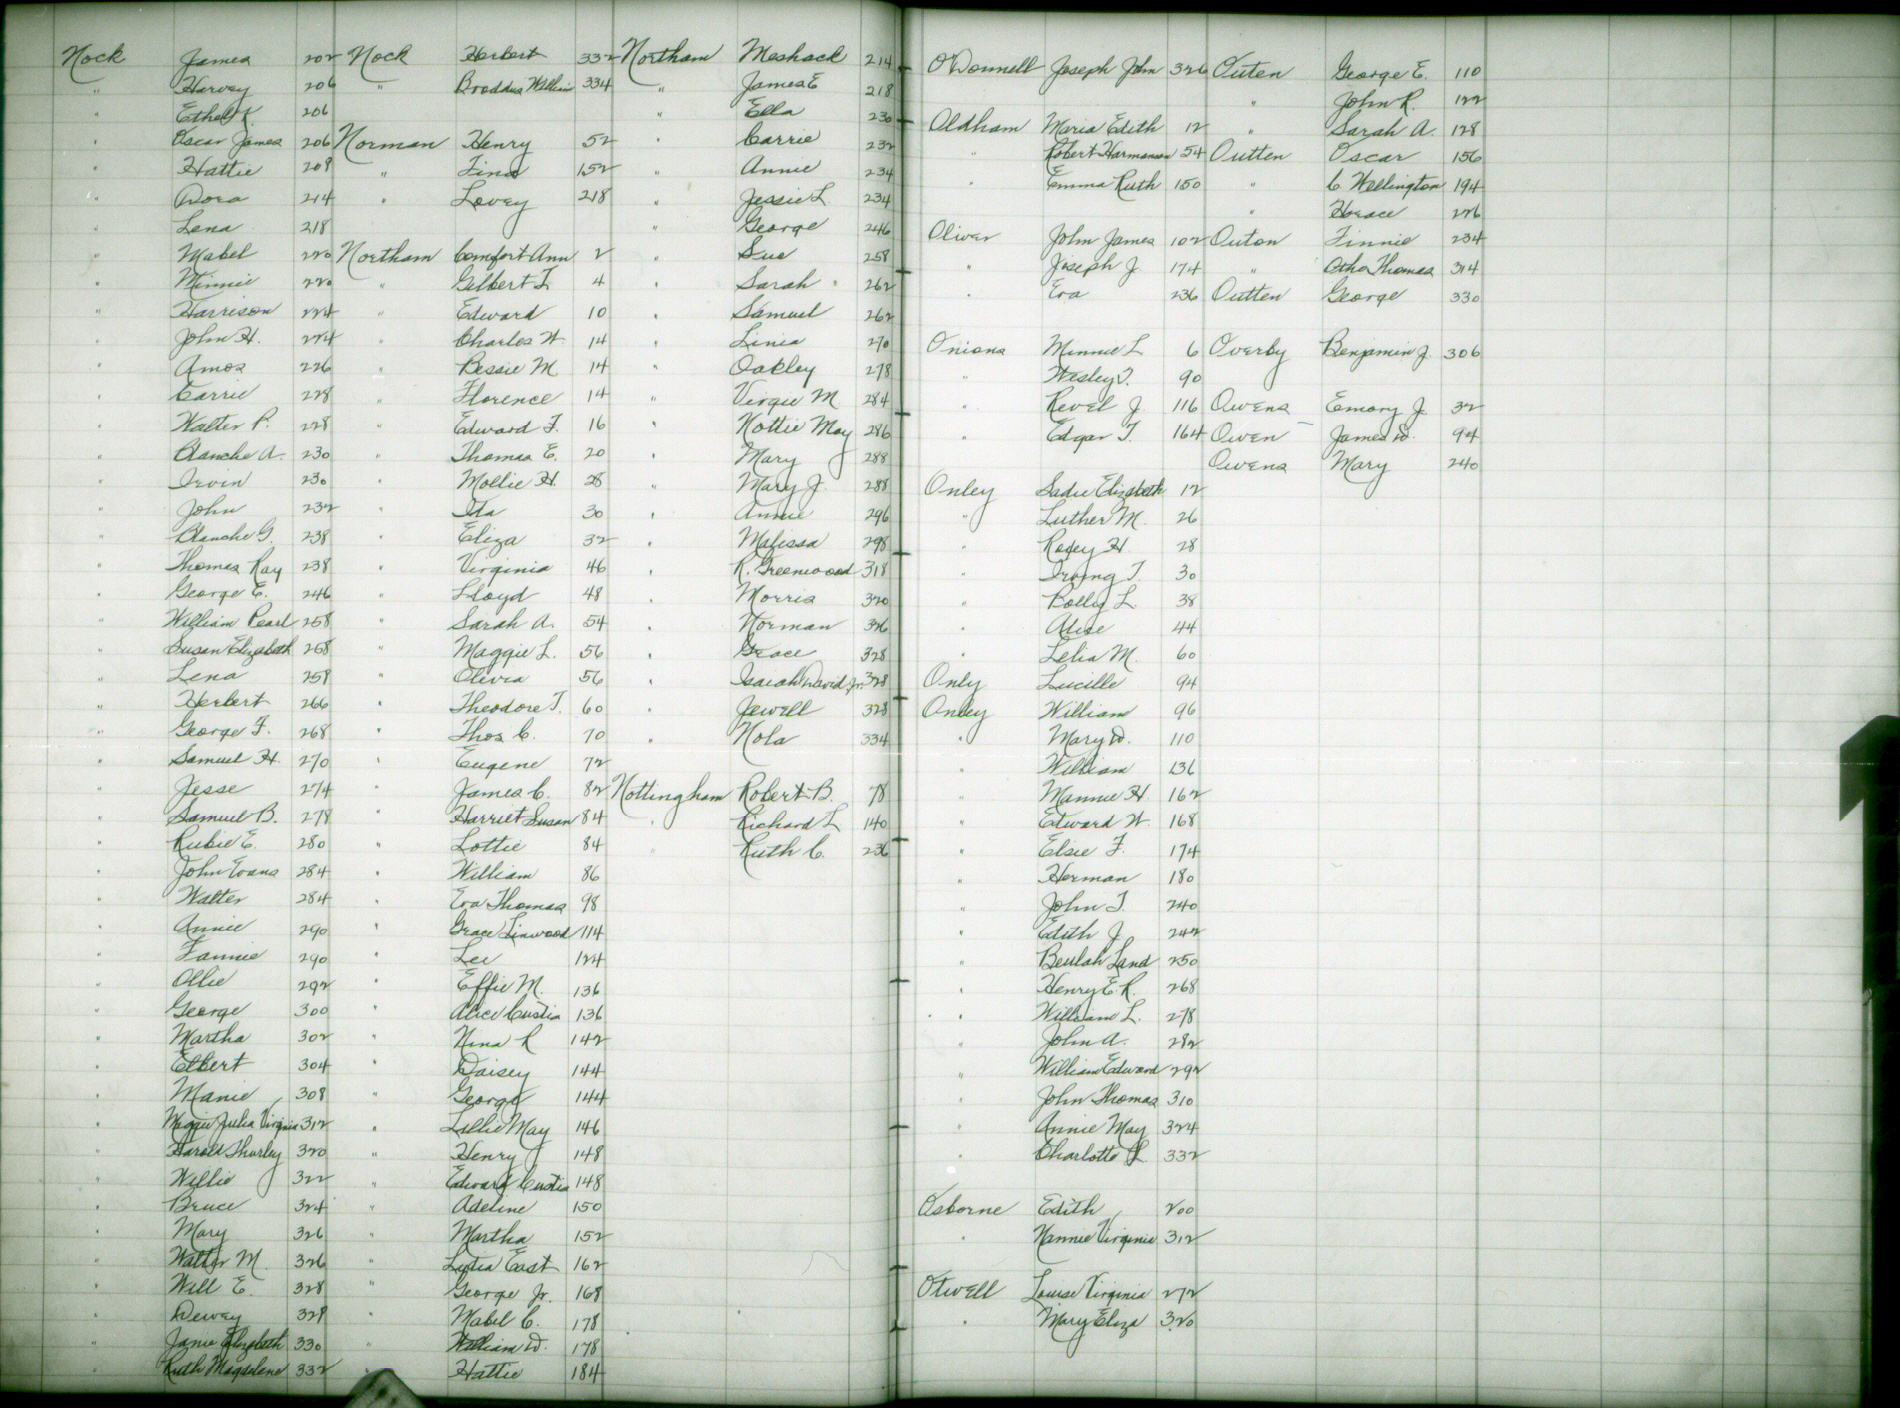 Nock James 202
" Harvey 206
" Ethel K. 206
" Oscar James 206
" Hattie 208
" Dora 214
" Lena 218
" Mabel 220
" Minnie 220
" Harrison 224
" John H. 224
" Amos 226
" Carrie 228
" Walter P. 228
" Blanche A. 230
" Irvin 230
" John 232
" Blanche G. 238
" Thomas Ray 238
" George E. 246
" William Pearl 258
" Susan Elizabeth 258
" Lena 258
" Herbert 266
" George F. 268
" Samuel H. 270
" Jesse 274
" Samuel B. 278
" Rubie E. 280
" John Evans 284
" Walter 284
" Annie 290
" Fannie 290
" Ollie 292
" George 300
" Martha 302
" Elbert 304
" Manie 308
" Maggie Julia Virginia 312
" Harold Thurley 320
" Willie 322
" Bruce 324
" Mary 326
" Walter M. 326
" Will E. 328
" Dewey 328
" Janie Elizabeth 330
" Ruth Magdelene 332
Nock Herbert 332
" Broddus William 334
Norman Henry 52
" Fina 152
" Lovey 218
Northam Comfort Ann 2
" Gilbert T 4
" Edward 10
" Charles W. 14
" Bessie M 14
" Florence 14
" Edward F. 16
" Thomas E. 20
" Mollie H. 28
" Ida 30
" Eliza 32
" Virginia 46
" Lloyd 48
" Sarah A. 54
" Maggie L. 56
" Olivia 56
" Theodore T. 60
" Thos C. 70
" Eugene 72
" James C. 82
" Harriet Susan 84
" Lottie 84
" William 86
" Eva Thomas 98
" Grace Linwood 114
" Lee 124
" Effie M. 136
" Alice Custis 136
" Nina R 142
" Daisey 144
" George 144
" Lillie May 146
" Henry 148
" Edward Custis 148
" Adeline 150
" Martha 152
" Lydia East 162
" George Jr. 168
" Mabel C. 178
" William D. 178
" Hattie 184
Northam Meshack 214
" James E 218
" Ella 230
" Carrie 232
" Annie 234
" Jessie L. 234
" George 246
" Sue 258
" Sarah 262
" Samuel 262
" Linia 270
" Oakley 278
" Virgie M. 284
" Nottie May 286
" Mary 288
" Mary J. 288
" Annie 296
" Malissa 298
" R. Greenwood 318
" Morris 320
" Norman 326
" Grace 328
" Isaiah David Jr. 328
" Jewell 328
" Nola 334
Nottingham Robert B. 78
" Richard L 140
" Ruth C. 236
O'Donnell Joseph John 326
Oldham Maria Edith 12
" Robert Harmanson 54
" Emma Ruth 150
Oliver John James 102
" Joseph J 174
" Eva 236
Onions Minnie L 6
" Wesley T. 90
" Revel J. 116
" Edgar T. 164
Onley Sadie Elizabeth 12
" Luther M. 26
" Rosey H 28
" Irving T. 30
" Polly L. 38
" Alice 44
" Lelia M. 60
Only Lucille 94
Onley William 96
" Mary D. 110
" William 136
" Mannie H. 162
" Edward W. 168
" Elsie F. 174
" Herman 180
" John T. 240
" Edith J 242
" Beulah Land 250
" Henry E. R. 268
" William L. 278
" John A. 282
" William Edward 292
" John Thomas 310
" Annie May 324
" Charlotte L. 332
Osborne Edith 200
" Nannie Virginia 312
Otwell Louise Virginia 272
" Mary Eliza 320
Outen George E. 110
" John R. 122
" Sarah A. 128
Outten Oscar 156
" C. Wellington 194
" Horace 226
Outon Finnie 234
" Otho Thomas 314
Outten George 330
Overby Benjamin J. 306
Owens Emory J. 32
Owen James D. 94
Owens Mary 240